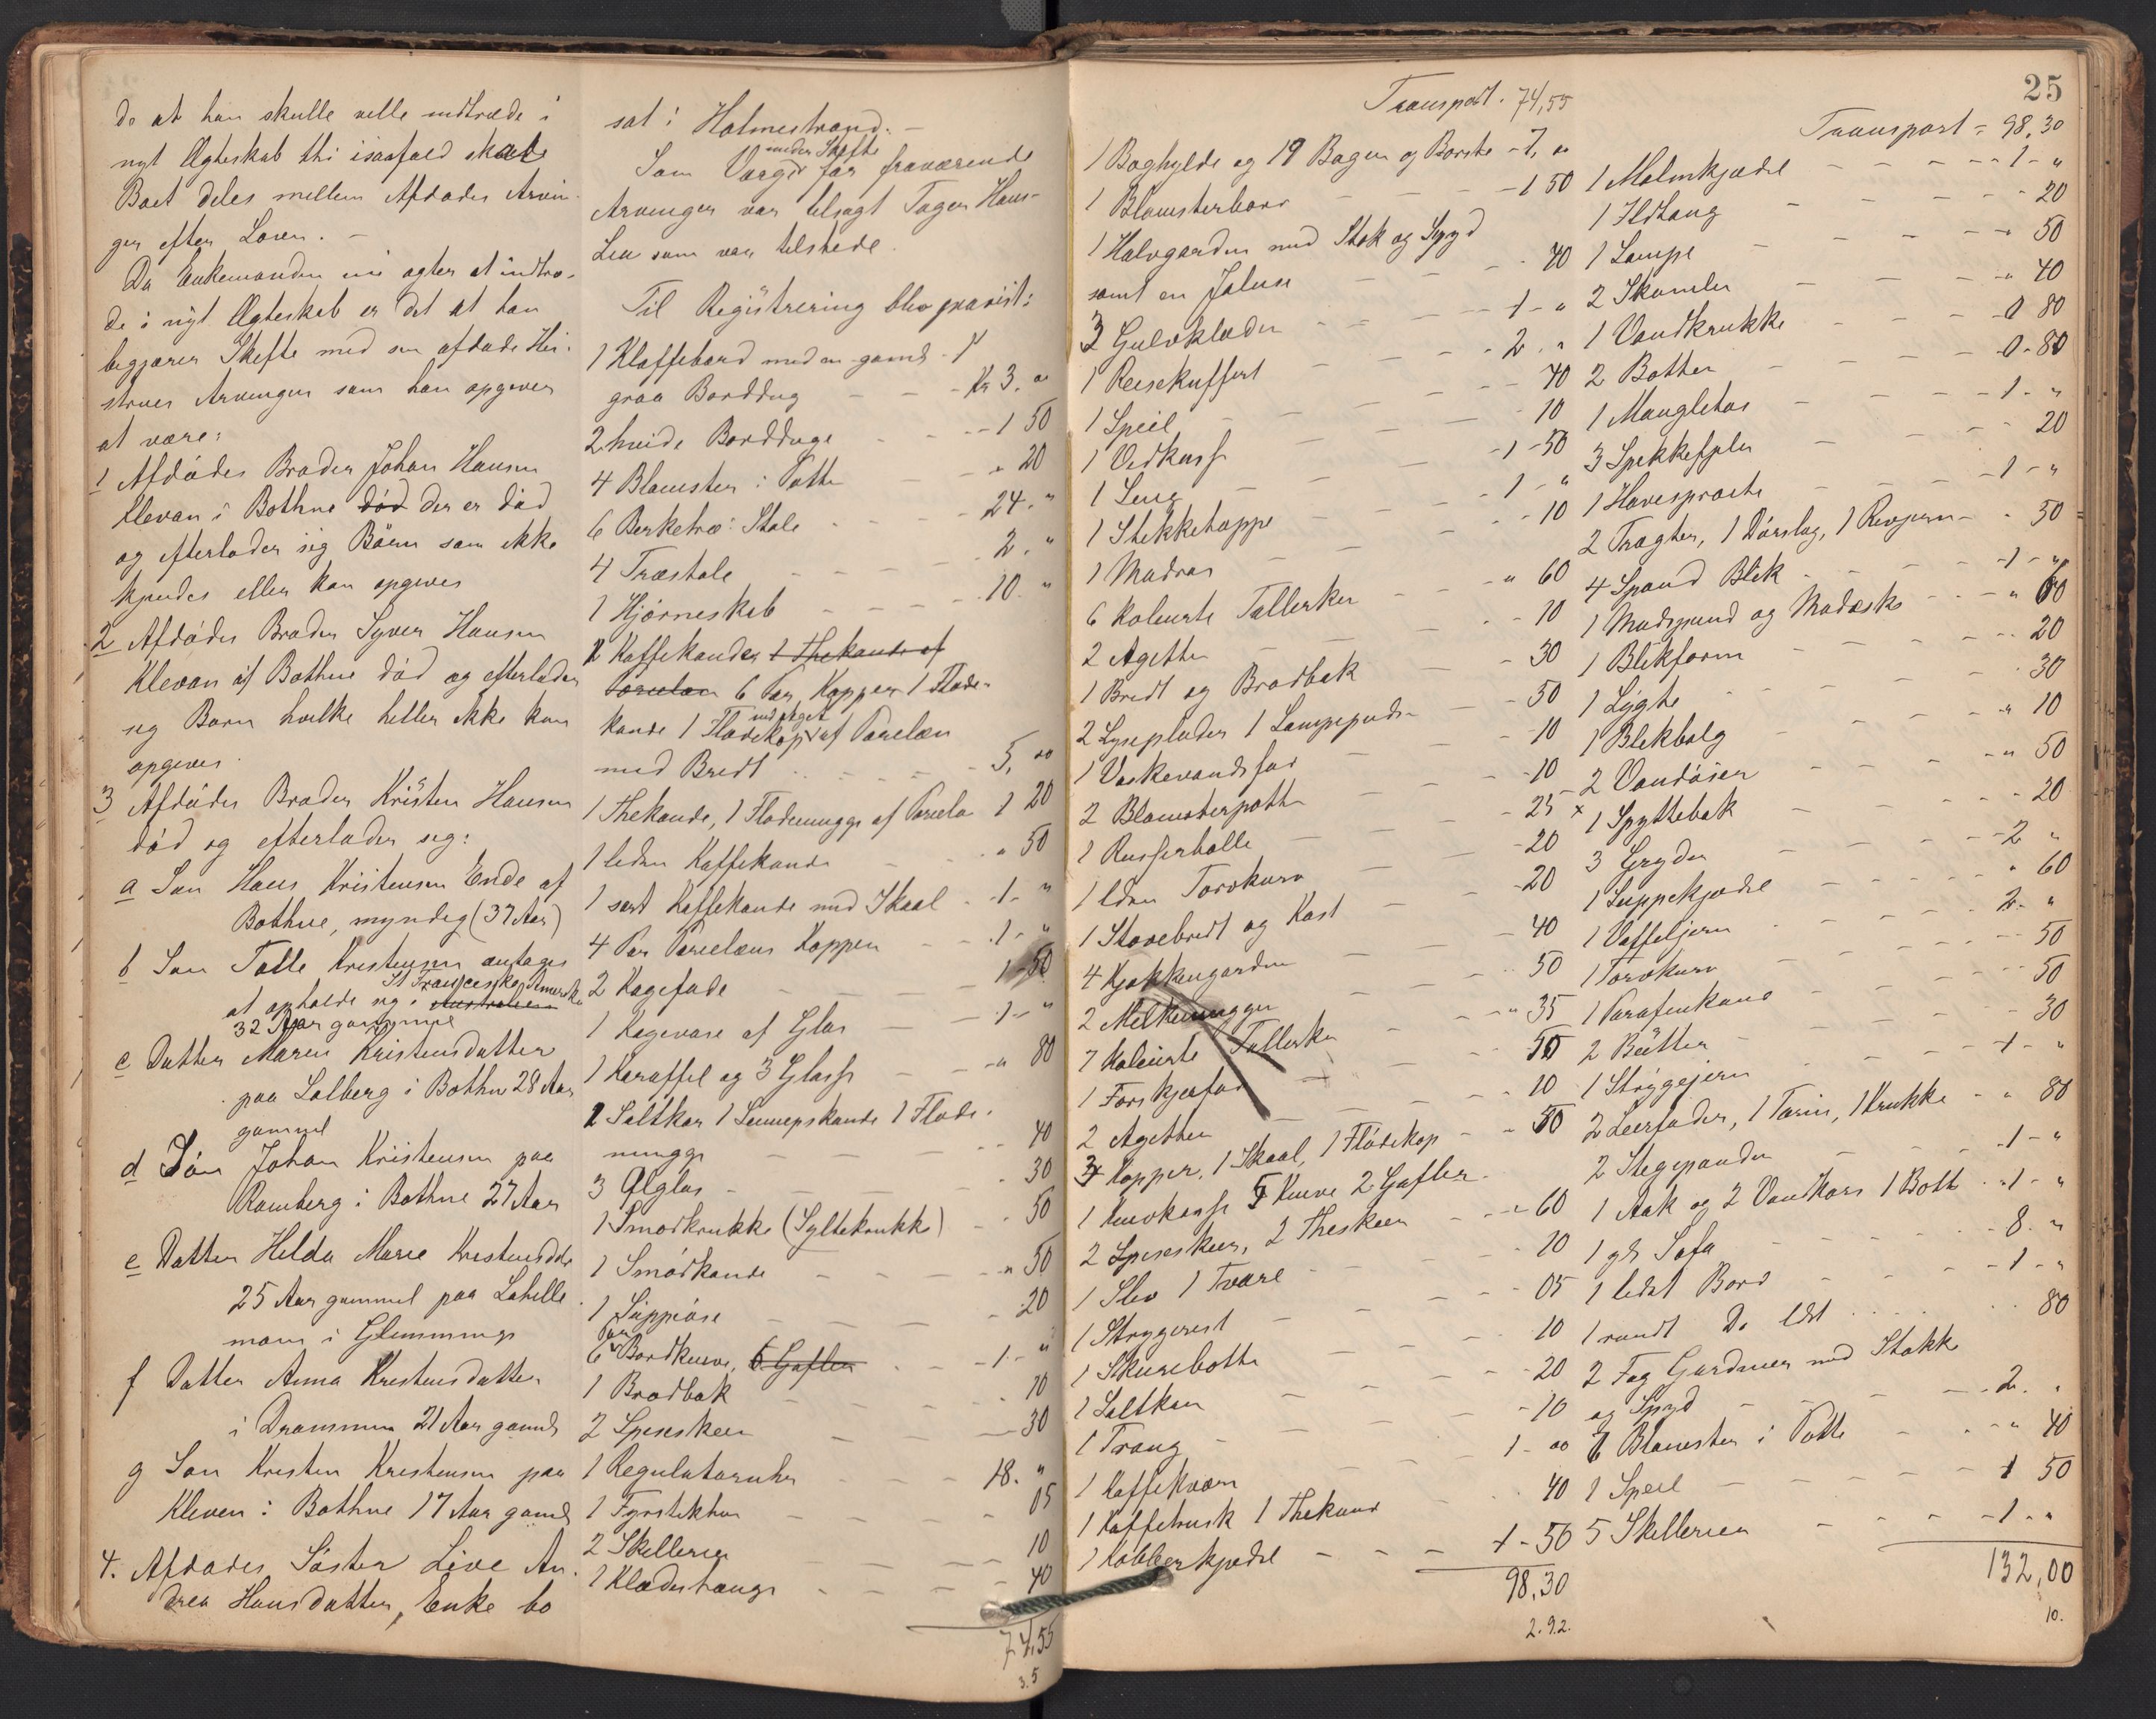 de at han skulle ville indtræde i
nyt Ægteskab thi isaafald skal
Boet deles mellem Afdødes Arvin-
ger efter Loven. -
Da Enkemanden nu agter at indtræ-
de i nyt Ægteskab er det at han
begjærer Skifte med sin afdøde Hu-
strues Arvinger som han opgiver
at være:
1 Afdødes Broder Johan Hansen
Klevan i Bothne død der er død
og efterlader sig Börn som ikke
kjendes eller kan opgives
2 Afdødes Broder Syver Hansen
Klevan af Bothne död og efterlader
sig Børn hvilke heller ikke kan
opgives.
3 Afdødes Broder Kristen Hansen
död og efterlader sig:
a Søn Hans Kristensen Ende af
Bothne, myndig (37 Aar)
b Søn Tolle Kristensen antages
at opholde sig i Australien St Francisko Amerika
32 Aar gammel
c Datter Maren Kristensdatter
paa Solberg i Bothne 28 Aar
gammel
d Søn Johan Kristensen paa
Ramberg i Bothne 27 Aar
e Datter Hilda Marie Kristensdtr
25 Aar gammel paa
i Glemminge
f Datter Anna Kristensdatter
i Drammen 21 Aar gaml
g Søn Kristen Kristensen paa
Kleven i Bothne 17 Aar gaml
4. Afdødes Söster Live An-
drea Hansdatter, Enke bo
sat i Holmestrand. -
Som Værge under Skifte for fraværende
Arvinger var tilsagt Hans-
Lea som var tilstede.
Til Registrering blev præsist:
1 Klaffebord med en gaml
graa Borddug - - Kr 3. 00
2 hvide Bordduge - - 1 50
4 Blomster i Potte - - " 20
6 Berketræ: Stole - - 24. "
4 Træstole - - 2. "
1 Hjørneskab - - 10. "
2 Kaffekander 1 Thekande af
Porcelæn 6 Par Kopper 1 Fløde-
kande 1 Flødekop af Porcelæn
med Bredt - - 5, 00
1 Thekande, 1 Flødemugge af Porcelæ 1 20
1 leder Kaffekande - " 50
1 sort Kaffekande med Skaal - 1 - "
4 Par Porcelæns Kopper - - 1 - "
2 Kagefade - - 1 - 50
1 Kagevase af Glas - - 1 - "
1 Karaffel og 3 Glasse - - " 80
2 Saltkar 1 Sennepskande 1 Fløde-
mugge - - 40
3 Ølglas - - 30
1 Smørkrukke (Syltekrukke) - 50
1 Smørkande - - " 50
1 Suppeøse - - 20
6 Par Bordknive, 6 Gafler - - 1 - "
1 Brødbak - - 10
2 Spiseskeer - - 30
1 Regulatoruhr - - 18. "
1 Fyrstikhus - - 05
2 Skillerier - - 10
1 Klædeshænge - - 40
74,55
3.5
25
Transport. 74,55
1 Boghylde og 19 Bøger og Børste - 7, 00
1 Blomsterbord - - 1 50
1 Halvgardin med Stok og Spyd
samt en Jaluse - - 40
3 Gulvklæder - - 1 - "
1 Reisekuffert - - 2. "
1 Speil - - 40
1 Vedkasse - - 10
1 Seng - - 1 - 50
1 Stikketæppe - - 1 - "
1 Madras - - 10
6 Kolerte Tallerker - - " 60
2 Agetter - - 10
1 Bredt og Brødbak - - 30
2 Lyseplader 1 Lampepude - - 50
1 Vaskevandsfad - - 10
2 Blomsterpotte - - 10
1 - - 25 x
1 lden Torvkurv - - 20
1 Stovebredt og Kost - - 20
4 Kjøkkengardin - - 40
2 Melkemugger - - 50
7 Kolerte Tallerker - - " 35
1 - - 50
2 Agetter - - 10
3 Kopper, 1 Skaal, 1 Flødekop - - 50
1 Knivkasse 5 Knive 2 Gafler.
2 Spiseskeer, 2 Theskeer - - " 60
1 Slev 1 Tvare - - 10
1 Strygerist - - 05
1 Skurebøtte - - 10
1 Saltkar - - 20
1 Traug - - 10
1 Kaffekværn - - 1 - 00
1 Kaffehusk 1 Thekand - - 40
1 Kobberkjedel - - 1 - 50
98.30
2.92.
Transport = 98,30
1 Malmkjædel - - 1 - "
1 Ildtang - - 20
1 Lampe - - 50
2 Skamler - - " 40
1 Vandkrukke - - 0 80
2 Bøtter - - 0 - 80
1 - - 1 - "
3 Spekkefjeler - - 20
1 Havesprøite - - 1 - "
2 Tragter, 1 Dørslag, 1 Revjern - " 50
4 Spand Blik - - 1 - "
1 Madspand og Madæske - - " 60
1 Blikform - - 20
1 Lygte - - 30
1 Blikbolg - - " 10
2 Vandøser - - " 50
1 Spyttebak - - 20
3 Gryder - - 2 "
1 Suppekjedel - - " 60
1 Vaffeljern - - 2. "
1 Torvkurv - - 50
1 Parafinkand - - 50
2 Bütter - - 30
1 Strygejern - - 1 - "
2 Leerfader, 1 Terin, 1 Krukke - " 80
2 Stegepander - - 1 - "
1 Aak og 2 Vandkar 1 Bøtt - 1 - "
1 gl Sofa - - 8. "
1 lidet Bord - - 1 - "
1 rundt Do ldt - - 80
2 Fag Gardiner med Stokke
og Spyd - - 2. "
6 Blomster i Potte - - " 40
1 Speil - - 1 50
5 Skillerier - - 1 - "
132,00
10.